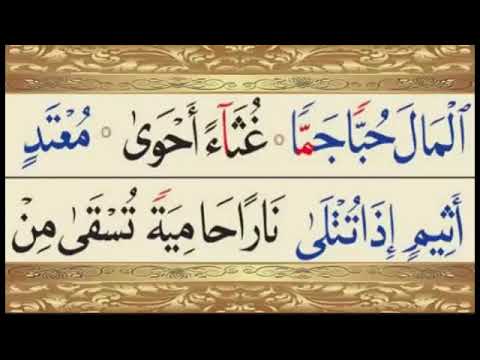 الْمَالَ حُبًّا جَمًّا ○ غُثَآءً أَحْوَىٰ ○ مُعْتَدٍ
أَثِيمٍ إِذَا تُتْلَىٰ نَارًا حَامِيَةً تُسْقَىٰ مِنْ